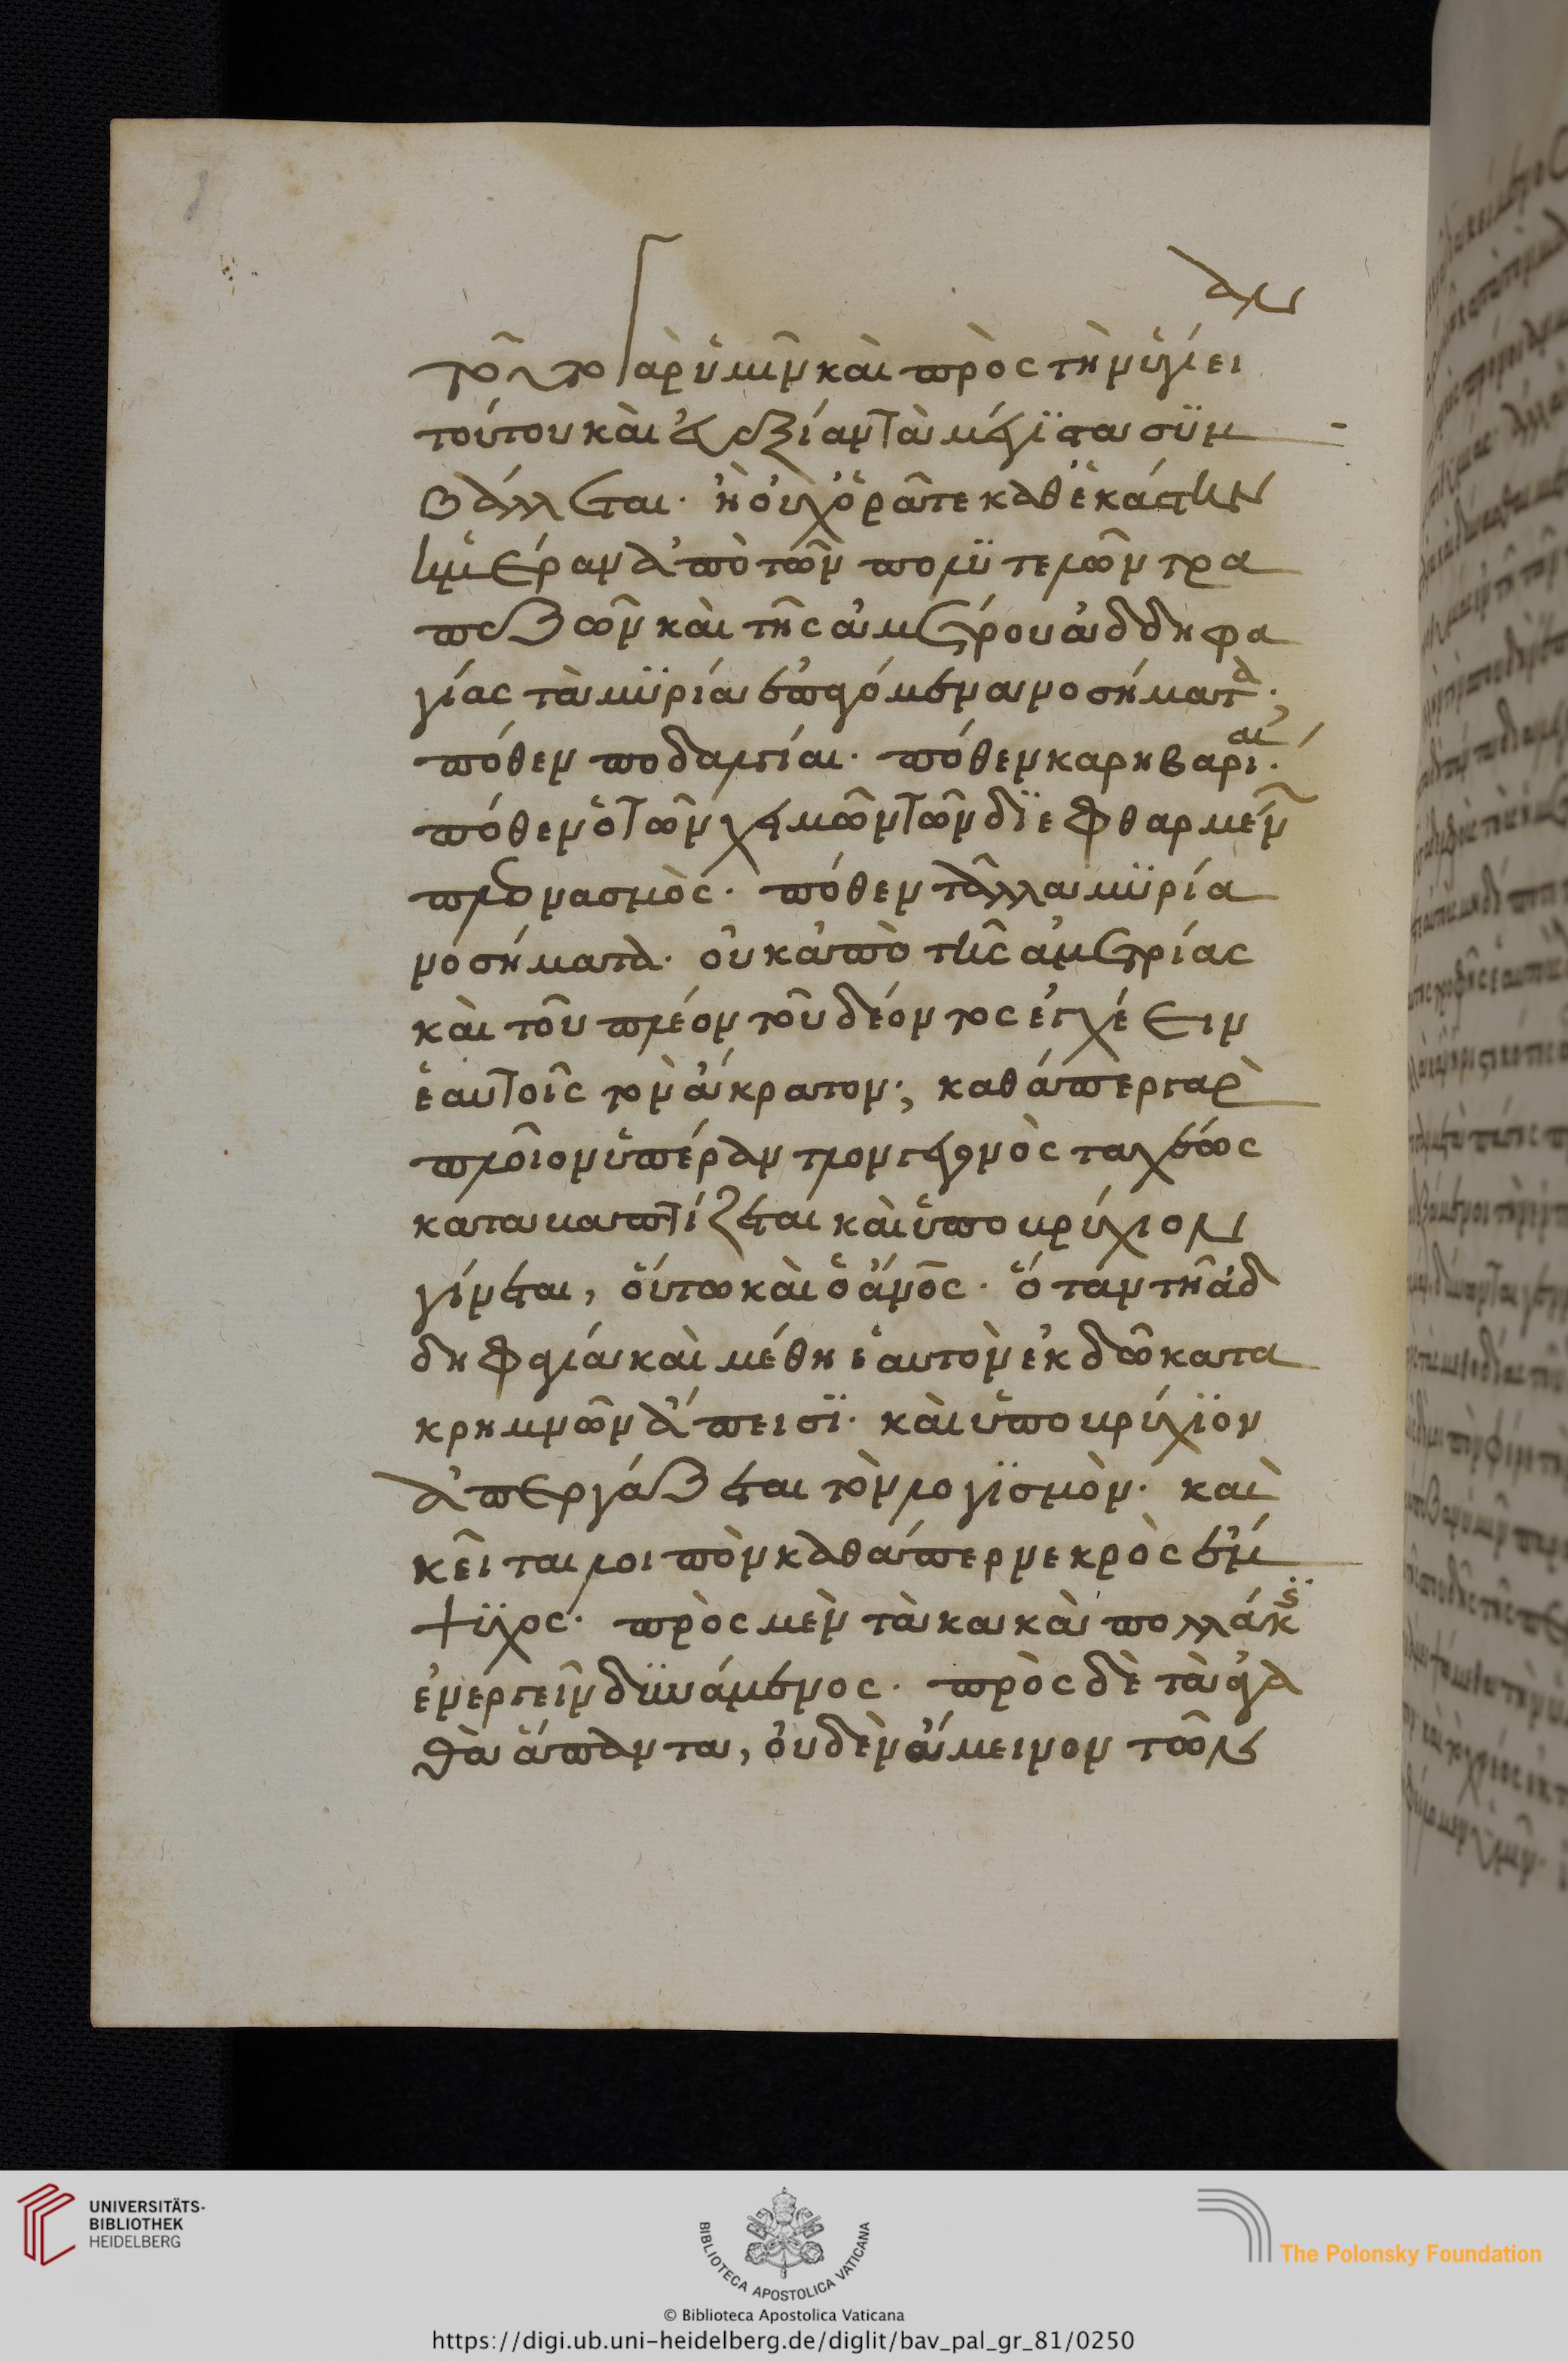 τοῦτο γὰρ ὑμῖν καὶ πρὸς τὴν ὑγίει
αν
τούτου καὶ εὐεξίαν τὰ μέγιστα συμ
βάλλεται· ἢ οὐχ ὁρᾶτε καθ' ἑκάστην
ἡμέραν ἀπὸ τῶν πολυτελῶν τρα
πεζῶν καὶ τῆς ἀμέτρου ἀδδηφα
γίας τὰ μυρία ἑπόμενα νοσήματα;
πόθεν ποδαλγίαι· πόθεν καρηβαρίαι·
πόθεν ὁ τῶν χυμῶν τῶν διεφθαρμέν
πλεονασμός· πόθεν τἄλλα μυρία
νοσήματα· οὐκ ἀπὸ τῆς ἀμετρίας
καὶ τοῦ πλέον τοῦ δέοντος ἐγχέειν
ἑαυτοῖς τὸν ἄκρατον; καθάπερ γὰρ
πλοῖον ὑπέραντλον γενόμενος ταχέως
καταβαπτίζεται καὶ ὑποβρύχιον
γίνεται, οὕτω καὶ ὁ ἄνος· ὅταν τῇ ἀδ
δηφαγία καὶ μέθη ἑαυτὸν ἐκδῶ κατα
κρημνῶν ἄπεισι· καὶ ὑποβρύχιον
ἀπεργάζεται τὸν λογισμόν· καὶ
κεῖται λοιπὸν καθάπερ νεκρὸς ἔμ
ψυχος· πρὸς μὲν τὰ κακὰ πολλάκις
ἐνεργεῖν δυνάμενος· πρὸς δὲ τὰ ἀγα
θὰ ἅπαντα, οὐδὲν ἄμεινον τῶν
UNIVERSITÄTS-
BIBLIOTHEK
HEIDELBERG
BIBLIOTECA APOSTOLICA VATICANA
The Polonsky Foundation
© Biblioteca Apostolica Vaticana
https://digi.ub.uni-heidelberg.de/diglit/bav_pal_gr_81/0250